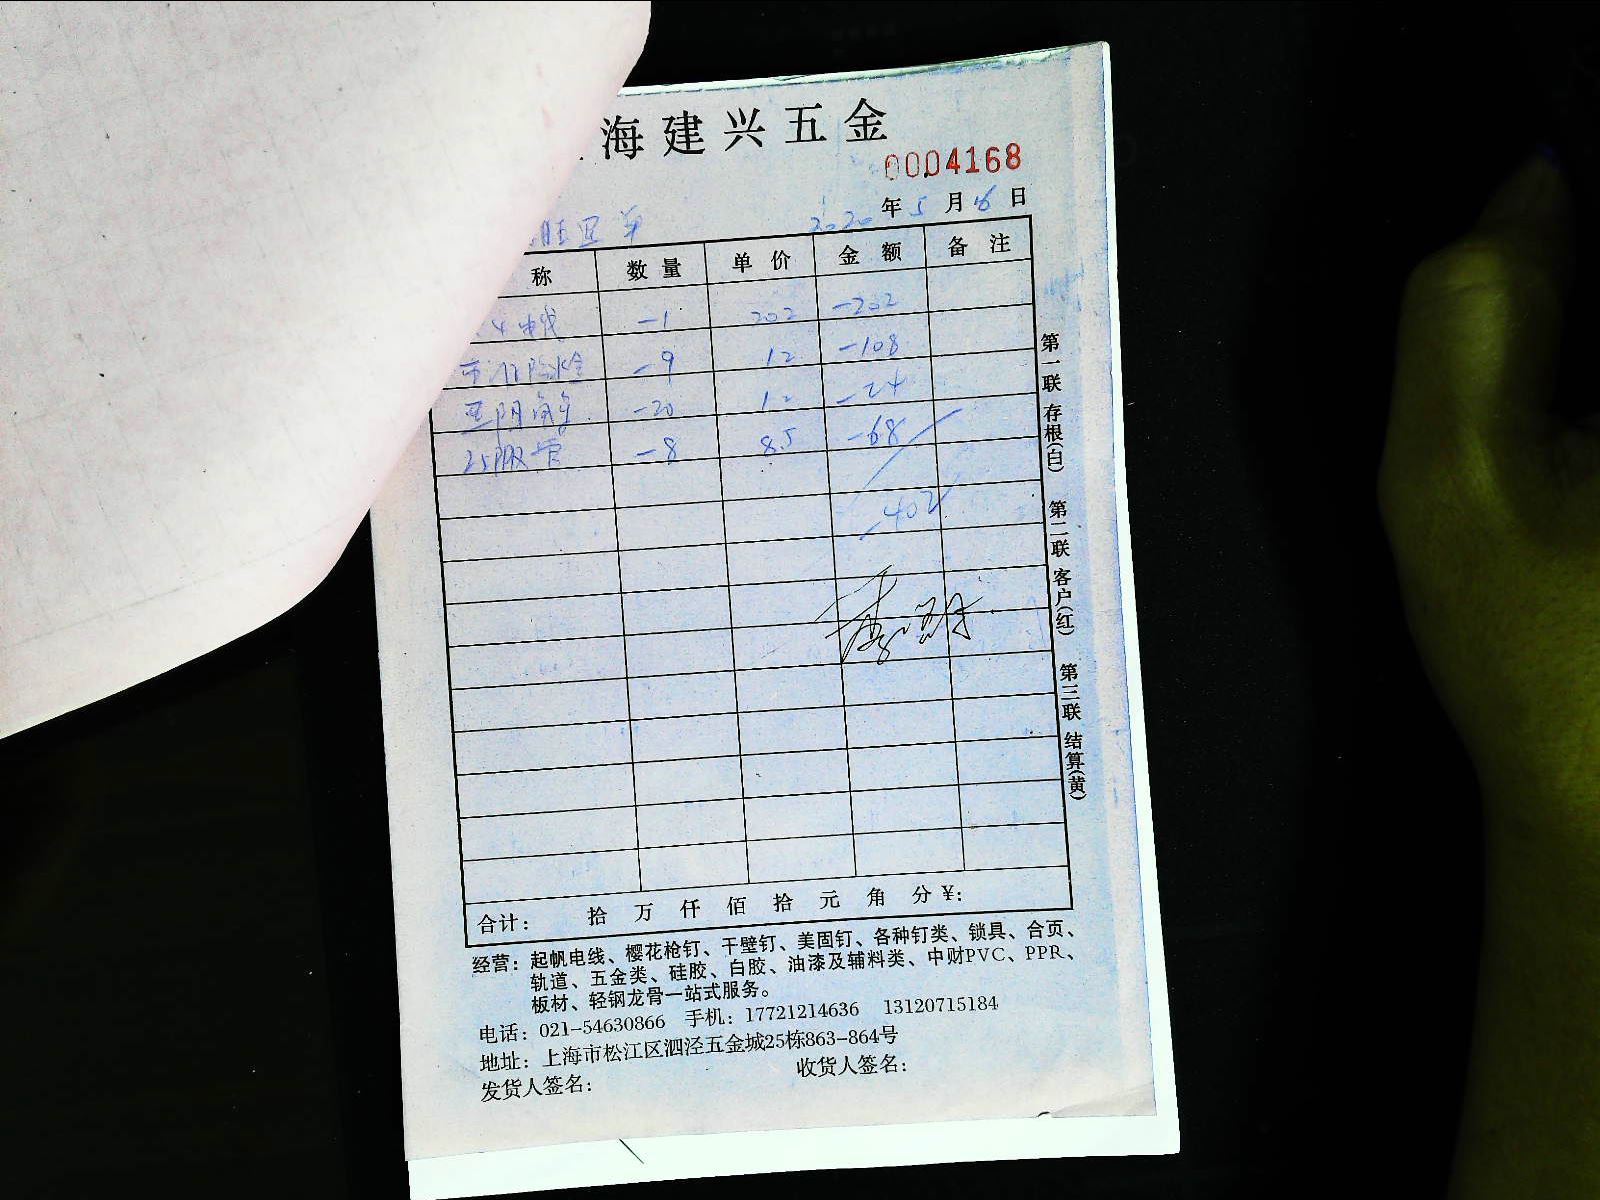 海建兴五金
0004168
2020年5月16日
称 数量 单价 金额 备注
-1 202 -202
-9 12 -108
阴角 -20 12 -24
25 管 -8 8.5 -68
-402
第一联 存根(白) 第二联 客户(红) 第三联 结算(黄)
合计: 拾 万 仟 佰 拾 元 角 分 ¥:
经营: 起帆电线、樱花枪钉、干壁钉、美固钉、各种钉类、锁具、合页、
轨道、五金类、硅胶、白胶、油漆及辅料类、中财PVC、PPR、
板材、轻钢龙骨一站式服务。
电话: 021-54630866 手机: 17721214636 13120715184
地址: 上海市松江区泗泾五金城25栋863-864号
发货人签名: 收货人签名: